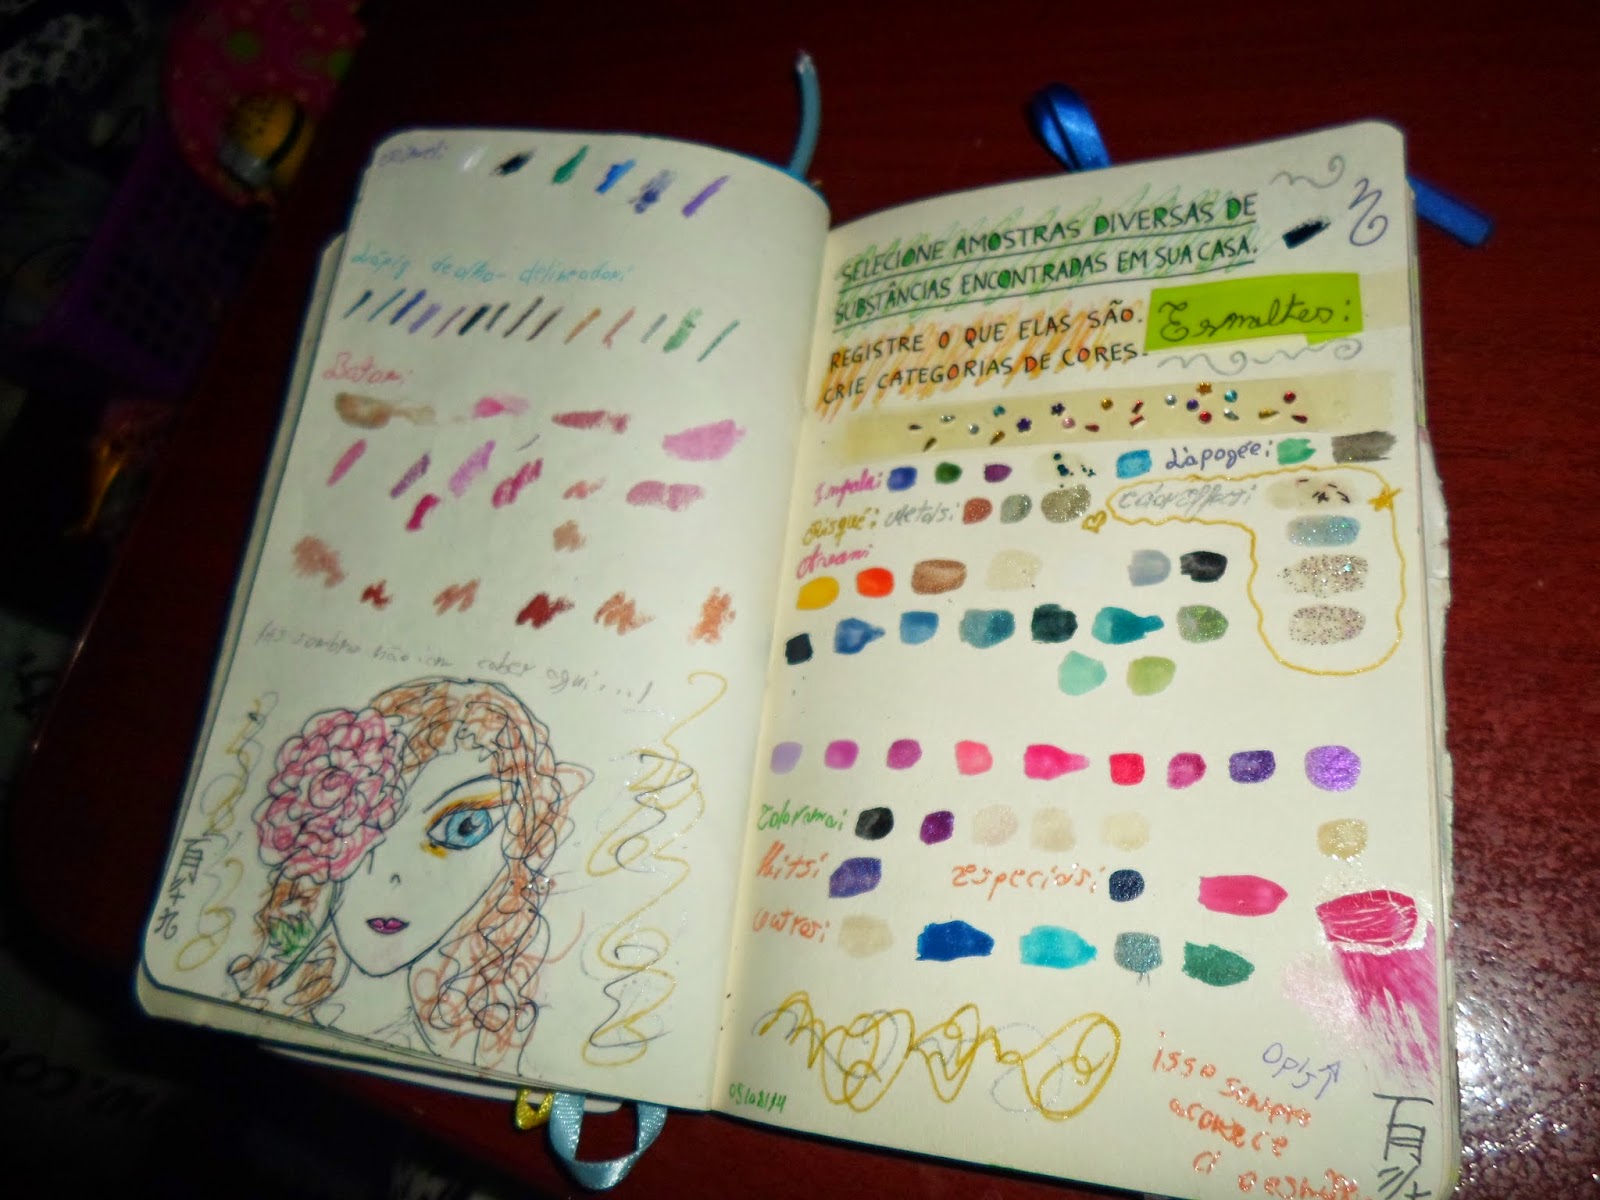 Rímel:
Lápis de olho - delineador:
Batom:
As sombras não iam caber aqui...!
SELECIONE AMOSTRAS DIVERSAS DE
SUBSTÂNCIAS ENCONTRADAS EM SUA CASA.
REGISTRE O QUE ELAS SÃO.
CRIE CATEGORIAS DE CORES.
Esmaltes:
Impala:
L'apogée:
Risqué: Metals:
Color effects:
Avon:
Colorama:
Hits:
Especiais:
outros:
Ops
isso sempre
acontece